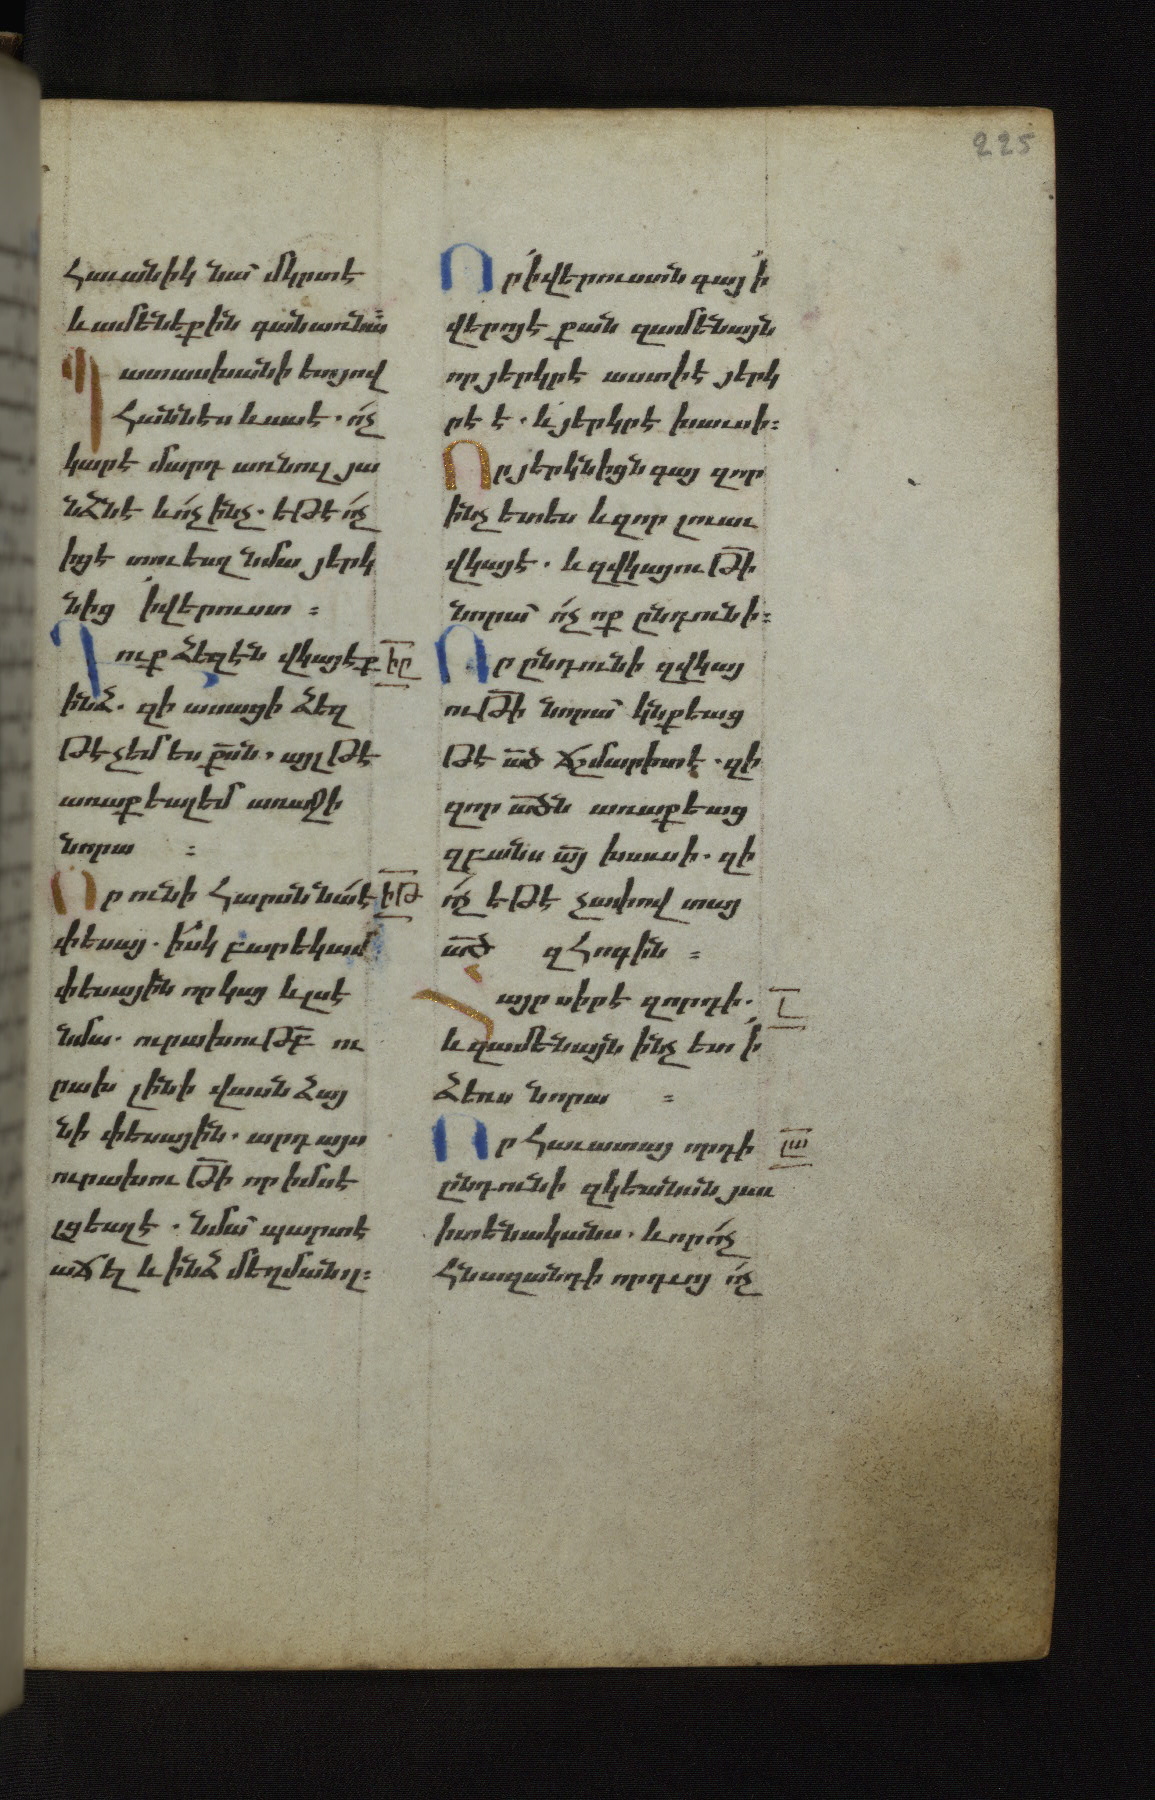 225
հաւանիկ նա՛ մկրտէ
և ամենեքին գան առ նա՛
Պատասխանի ետ յով
հաննէս և ասէ. ո՛չ
կարէ մարդ առնուլ յա
նձնէ և ո՛չ ինչ. եթէ ո՛չ
իցէ տուեալ նմա յերկ
նից ի՛ վերուստ :
Դուք ձեզէն վկայէք
ինձ. զի ասացի ձեզ
թե չեմ ես ք̅ս̅ն. այլ թէ
առաքեալ եմ առաջի
նորա :
Որ ունի հարսն նա՛ է
փեսայ. իսկ բարեկամ
փեսային որ կայ և լսէ
նմա. ուրախութբ̅ ու
րախ լինի վասն ձայ
նի փեսային. արդ այս
ուրախու թի̅ որ իմս է
լցեալ է. նմա՛ պարտ է
աճել և ինձ մեղմանալ :
ԻԸ
ԻԹ
Որ ի՛վերուստն գայ ի՛
վերոյ է քան զամենայն
որ յերկրէ աստի է յերկ
րէ է. և յերկրէ խաւսի :
Որ յերկնիցն գայ զոր
ինչ ետես և զոր լուաւ
վկայէ. և զվկայու թի̅
նորա՛ ո՛չ ոք ընդունի :
Որ ընդունի զվկայ
ու թի̅ նորա՛ կնքեաց
թէ ա̅ծ ճշմարիտ է. զի
զոր ա̅ծն առաքեաց
զբանս ա̅յ խաւսի. զի
ո՛չ եթէ չափով տայ
ա̅ծ զհոգին :
Հայր սիրէ զորդի.
և զամենայն ինչ ետ ի՛
ձեռս նորա :
Որ հաւատայ որդի
ընդունի զկեանսն յաւ
իտենականս. և որ ո՛չ
հնազանդի որդւոյ ո՛չ
Լ
ԼԱ